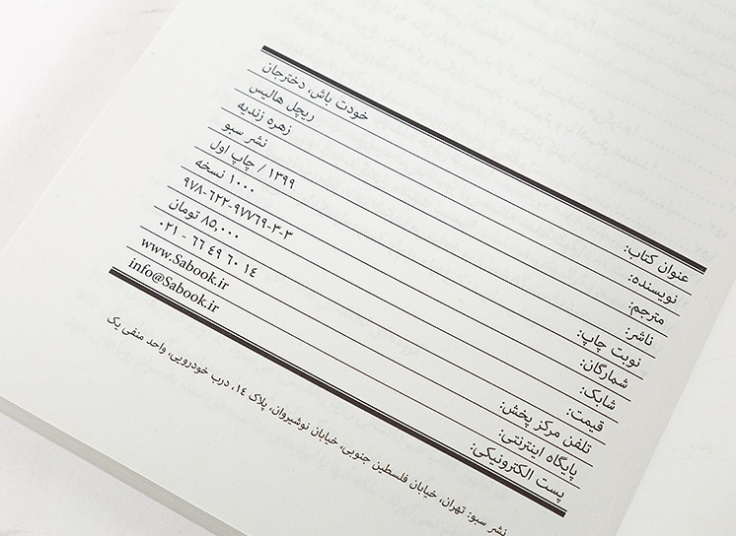 عنوان کتاب: خودت باش، دخترجان
نویسنده: ریچل هالیس
مترجم: زهره زندیه
ناشر: نشر سبو
نوبت چاپ: ۱۳۹۹ / چاپ اول
شمارگان: ۱۰۰۰ نسخه
شابک: ۹۷۸-۶۲۲-۹۷۷۶۹-۳-۳
قیمت: ۸۵,۰۰۰ تومان
تلفن مرکز پخش: ۰۲۱ - ۶۶ ۴۹ ۶۰ ۱۴
پایگاه اینترنتی: www.Sabook.ir
پست الکترونیکی: info@Sabook.ir
نشر سبو: تهران، خیابان فلسطین جنوبی، خیابان نوشیروان، پلاک ۱۴، درب خودرویی، واحد منفی یک